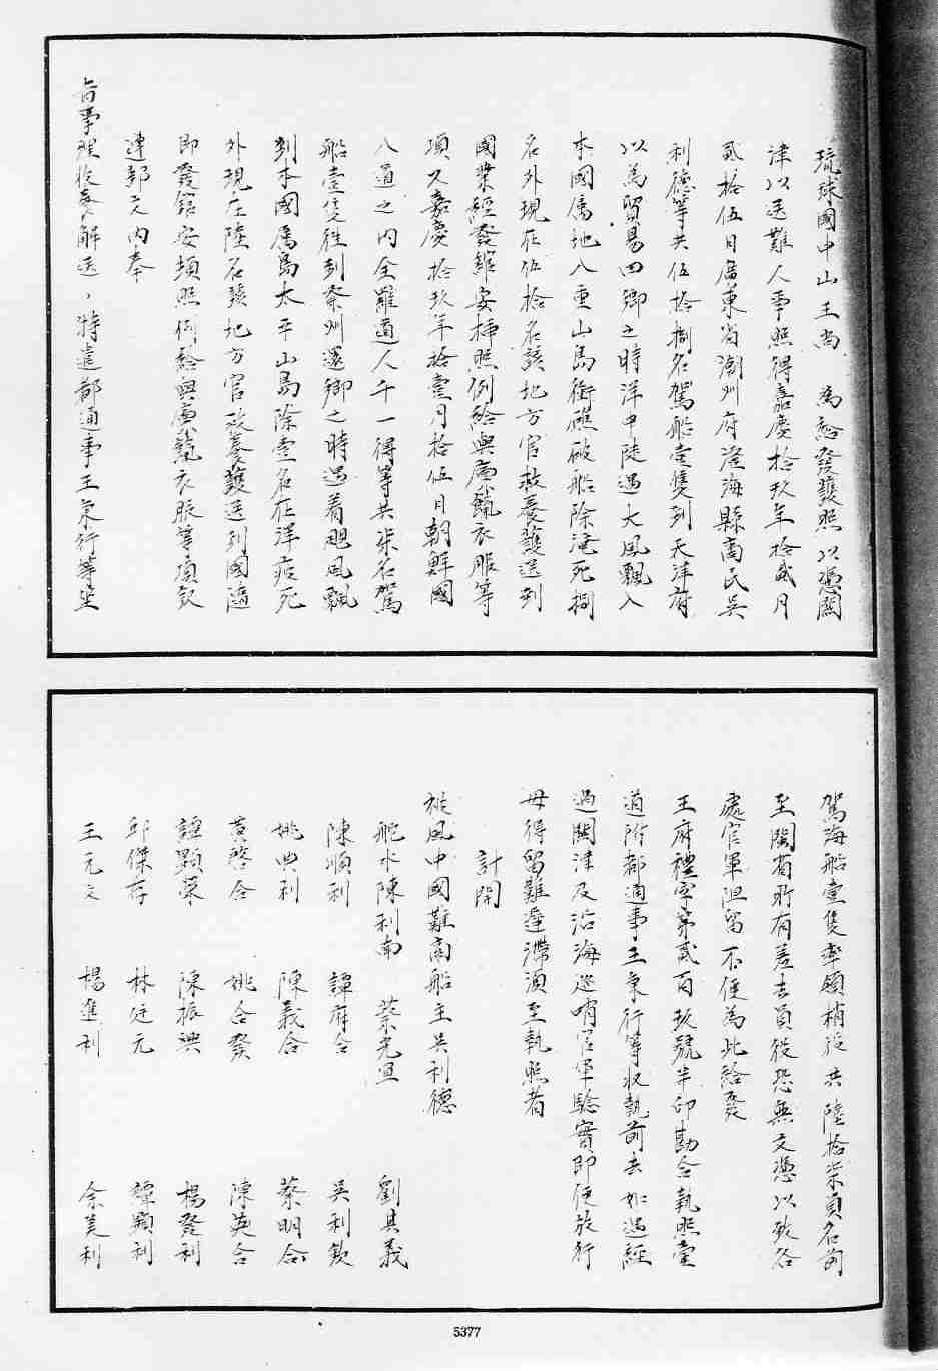 琉球國中山王尚　為給發護照以憑關
津以送難人事照得嘉慶拾玖年拾貳月
貳拾伍日廣東省潮州府澄海縣商民吳
利德等共伍拾捌名駕船壹隻到天津府
以為貿易回鄉之時洋中陡遇大風飄入
本國屬地八重山島衝礁破船除淹死捌
名外現在伍拾名該地方官救養護送到
國業經發館安插照例給與廩餼衣服等
項又嘉慶拾玖年拾壹月拾伍日朝鮮國
八道之內全羅道人千一得等共柒名駕
船壹隻往到
州還鄉之時遇着颶風飄
到本國屬島太平山島除壹名在洋疫死
外現在陸名該地方官收養護送到國隨
即發館安頓照例給與廩餼衣服等項欽
遵部文內奉
旨事理收養解送，特遣都通事王秉行等坐
駕海船壹隻率領梢役共陸拾柒員名前
至閩省所有差去員役恐無文憑以致各
處官軍阻留不便為此給發
王府禮字第貳百玖號半印勘合執照壹
道附都通事王秉行等收執前去如遇經
過關津及沿海巡哨官軍驗實即便放行
毋得留難遲滯須至執照者
計開
被風中國難商船主吳利德
舵水陳利南　蔡光宜　劉其義
陳順利　譚府合　吳利欽
姚典利　陳義合　蔡明合
黃啓合　姚合發　陳英合
譚顯榮　陳振興　楊發利
邱傑存　林廷元　譚顯利
王元文　楊進利　余美利
5377